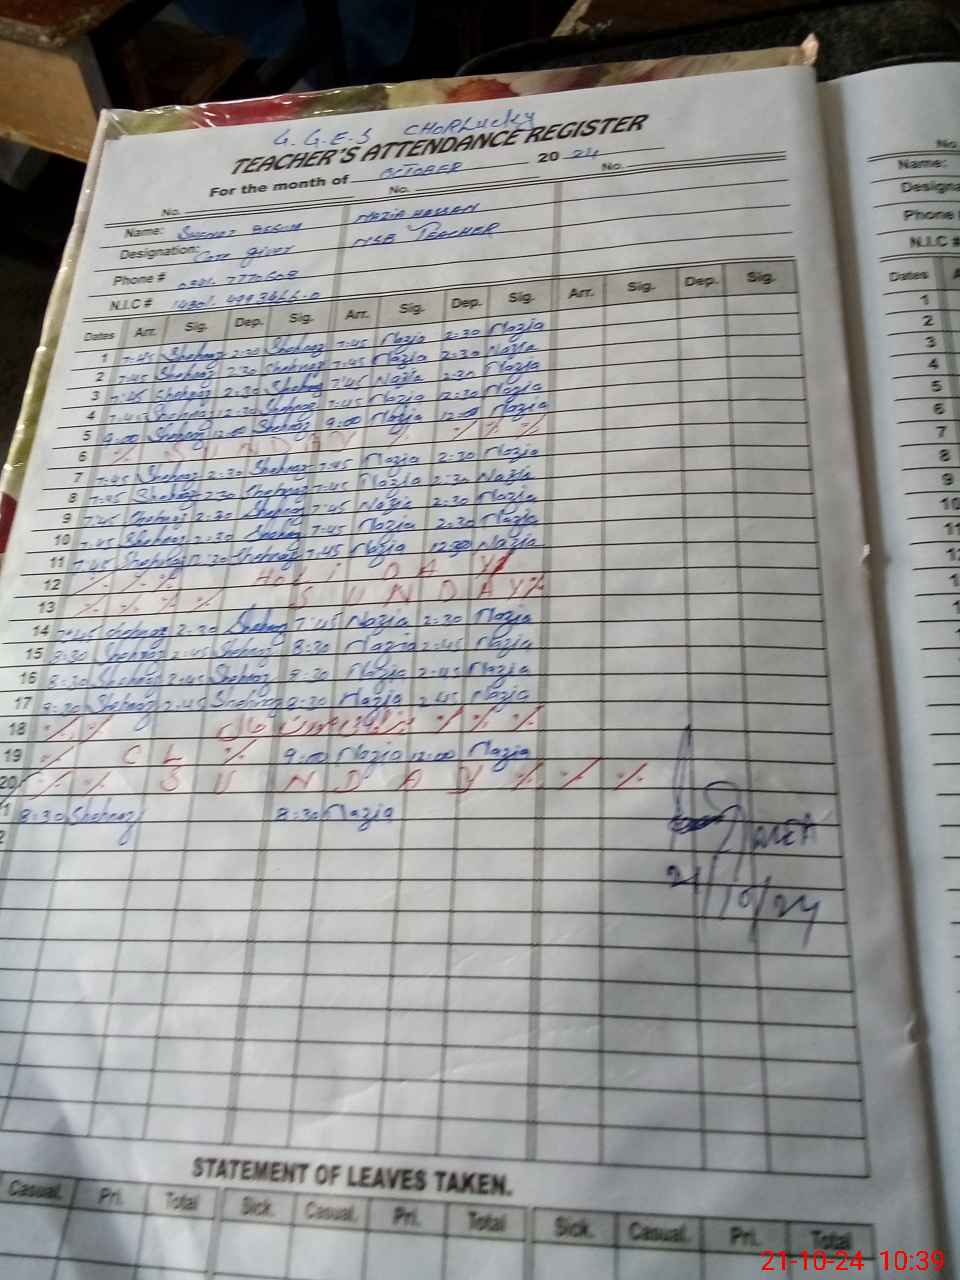 G.G.E.S CHORLucky
TEACHER'S ATTENDANCE REGISTER
For the month of OCTOBER 20 24
No. No. No.
Name: BEGUM NAZIA HASSAN
Designation: Care giver TEACHER
Phone #
N.I.C #
Dates Arr. Sig. Dep. Sig. Arr. Sig. Dep. Sig. Arr. Sig. Dep. Sig.
1 7:45 Shehnaz 2:30 Shehnaz 7:45 Nazia 2:30 Nazia
2 7:45 Shehnaz 2:30 Shehnaz 7:45 Nazia 2:30 Nazia
3 7:45 Shehnaz 2:30 Shehnaz 7:45 Nazia 2:30 Nazia
4 7:45 Shehnaz 12:30 Shehnaz 7:45 Nazia 12:30 Nazia
5 9:00 Shehnaz 12:00 Shehnaz 9:00 Nazia 12:00 Nazia
6 % SUNDAY % % % %
7 7:45 Shehnaz 2:30 Shehnaz 7:45 Nazia 2:30 Nazia
8 7:45 Shehnaz 2:30 Shehnaz 7:45 Nazia 2:30 Nazia
9 7:45 Shehnaz 2:30 Shehnaz 7:45 Nazia 2:30 Nazia
10 7:45 Shehnaz 2:30 Shehnaz 7:45 Nazia 2:30 Nazia
11 7:45 Shehnaz 12:30 Shehnaz 7:45 Nazia 12:30 Nazia
12 % % % HOLIDAY
13 % % % % SUNDAY %
14 7:45 Shehnaz 2:30 Shehnaz 7:45 Nazia 2:30 Nazia
15 8:30 Shehnaz 2:45 Shehnaz 8:30 Nazia 2:45 Nazia
16 8:30 Shehnaz 2:45 Shehnaz 8:30 Nazia 2:45 Nazia
17 8:30 Shehnaz 2:45 Shehnaz 8:30 Nazia 2:45 Nazia
18 % % % % %
19 % C L % 9:00 Nazia 12:00 Nazia
20 % % SUNDAY % % %
1 8:30 Shehnaz 8:30 Nazia
2
21/10/24
STATEMENT OF LEAVES TAKEN.
Casual. Pri. Total Sick. Casual. Pri. Total Sick. Casual. Pri. Total
No
Name:
Designa
Phone
N.I.C #
Dates A
1
2
3
4
5
6
7
8
9
10
11
21-10-24 10:39